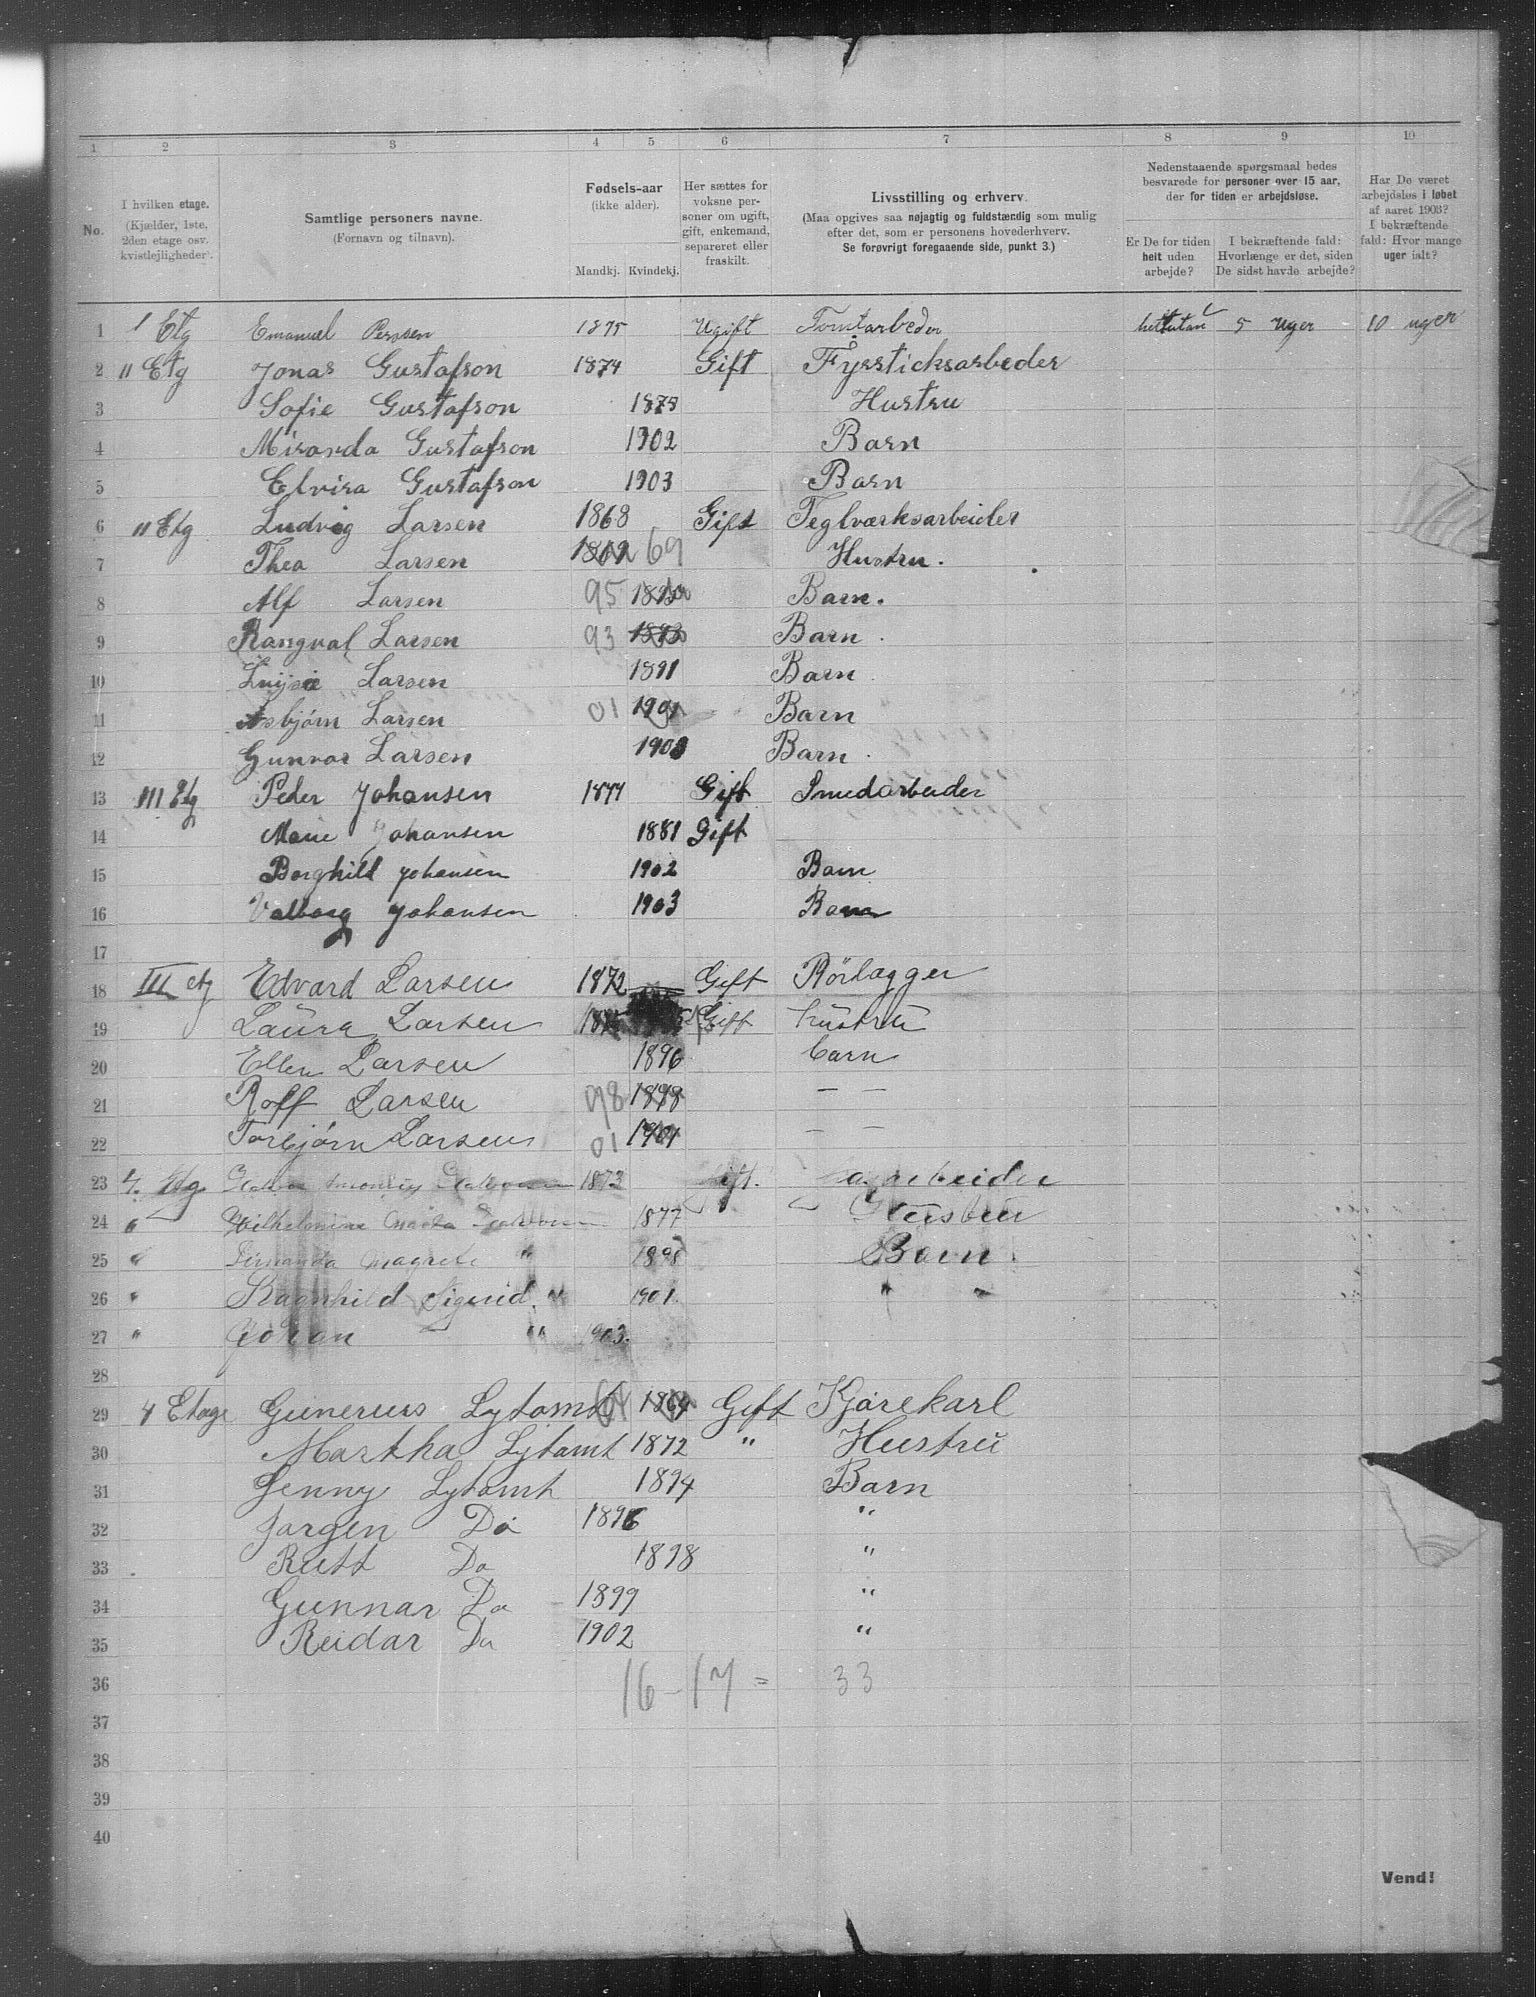 1 2 3 4 5 6 7 8 9 10
No.
I hvilken etage.
(Kjælder, 1ste, 2den etage osv. kvistleiligheder).
Samtlige personers navne.
(Fornavn og tilnavn).
Fødsels-aar
(ikke alder).
Mandkj. Kvindekj.
Her sættes for voksne personer om ugift, gift, enkemand, separeret eller fraskilt.
Livsstilling og erhverv.
(Maa opgives saa nøjagtig og fuldstændig som mulig efter det, som er personens hovederhverv.
Se forøvrigt foregaaende side, punkt 3.)
Nedenstaaende spørgsmaal bedes besvarede for personer over 15 aar, der for tiden er arbejdsløse.
Er De for tiden helt uden arbejde?
I bekræftende fald: Hvorlænge er det, siden De sidst havde arbejde?
Har De været arbejdsløs i løbet af aaret 1903? I bekræftende fald: Hvor mange uger ialt?
1 1 Etg Emanuel Perssen 1875 Ugift Tomtarbeder 5 uger 10 uger
2 11 Etg Jonas Gustafson 1874 Gift Fyrsticksarbeder
3 Sofie Gustafson Hustru
4 Miranda Gustafson 1902 Barn
5 Elvira Gustafson 1903 Barn
6 11 Etg Ludvig Larsen 1868 Gift Teglværksarbeider
7 Thea Larsen 69 Hustru.
8 Alf Larsen 95 Barn.
9 Rangval Larsen 93 1893 Barn.
10 Larsen 1891 Barn
11 Asbjørn Larsen 01 1901 Barn
12 Gunvor Larsen 1903 Barn.
13 111 Etg Peder Johansen 1877 Gift Smedarbeider
14 Marie Johansen 1881 Gift
15 Borghild Johansen 1902 Barn
16 Valborg Johansen 1903 Barn
17
18 III etg Edvard Larsen 1872 Gift Rörlægger
19 Laura Larsen Gift hustru
20 Ellen Larsen 1896 barn
21 Rolf Larsen 98 1898 — —
22 Torbjørn Larsen 01 1901 — —
23 4. Etg 1873 Gift.
24 " Wilhelmine 1877 Hustru
25 " Magrete " 1898 Barn.
26 " Ragnhild Sigrid " 1901. " "
27 " Johan " 1903.
28
29 4 Etage Gunerius Lytomt 64 1864 Gift Kjørekarl
30 Martha Lytomt 1872 " Hustru
31 Jenny Lytomt 1894 Barn
32 Jørgen Do 1896 "
33 Rutt Do 1898 "
34 Gunnar Do 1899 "
35 Reidar Do 1902 "
36 16 - 17 = 33
37
38
39
40
Vend!